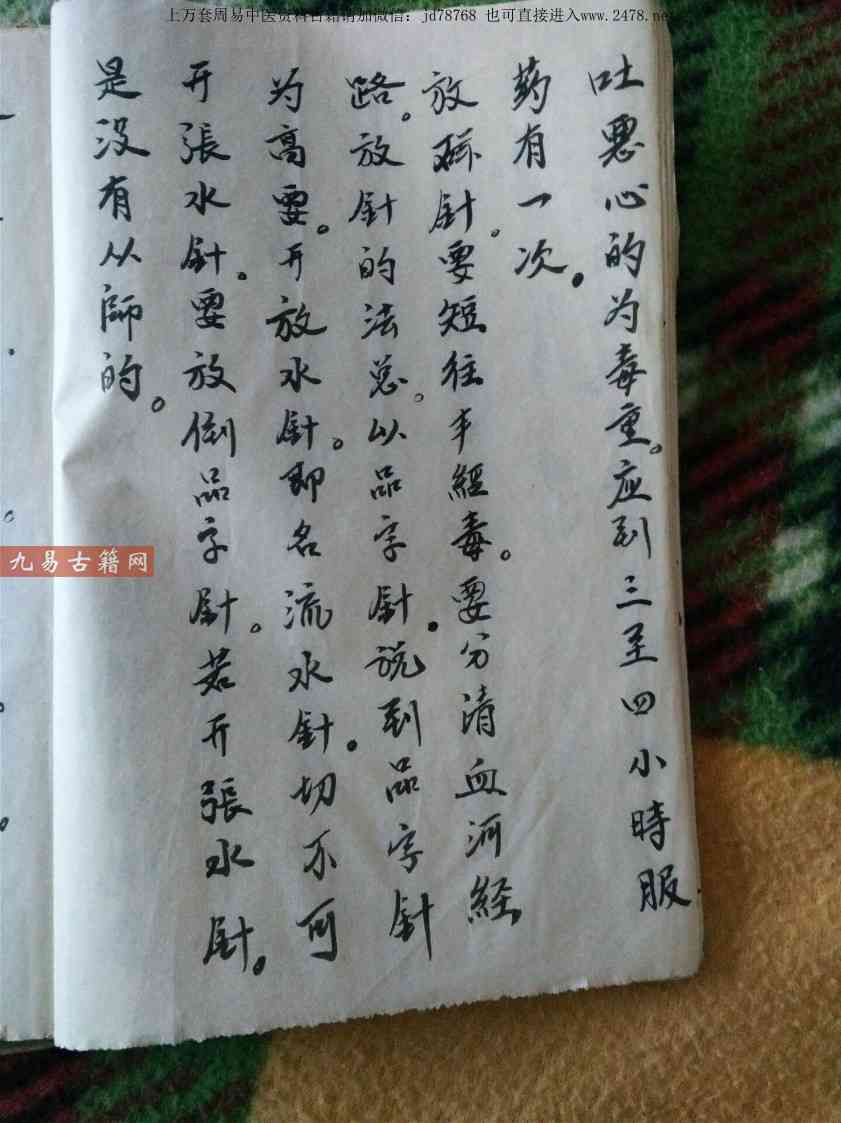 上万套周易中医资料古籍请加微信： jd78768 也可直接进入www.2478.net
吐恶心的为毒重。应到三至四小時服
药有一次。
放 針。要短往 經毒。要分清血河経
路。放針的法总。以品字針。说到品字針
为高要。开放水針。即名流水針。切不可
开張水針。要放倒品字針。若开張水針。
是没有从師的。
九易古籍网